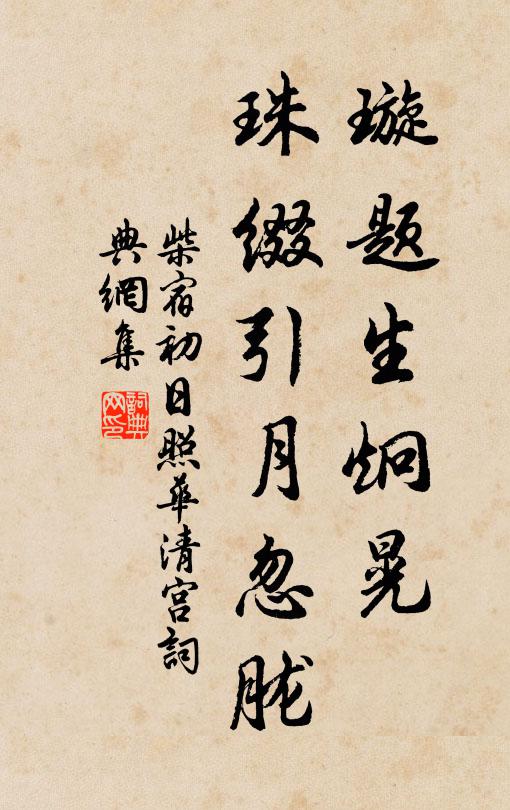 璇题生炯晃
珠缀引月忽胧
柴宿初日照華清宮詞
典網集
詞典
网印